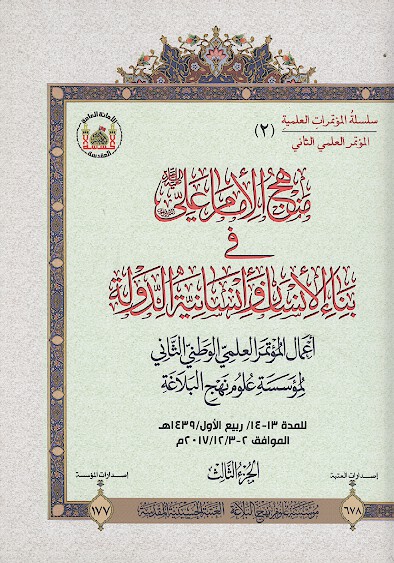 سلسلة المؤتمرات العلمية
(٢)
المؤتمر العلمي الثاني
الأمانة العامة
المقدسة
منهج الإمام علي
في
بناء الإنسان وإنسانية الدولة
أعمال المؤتمر العلمي الوطني الثاني
لمؤسسة علوم نهج البلاغة
للمدة ١٣-١٤/ ربيع الأول/١٤٣٩هـ
الموافق ٢-٢٠١٧/١٢/٣م
الجزء الثالث
إصدارات العتبة
إصدارات المؤسسة
٦٧٨
مؤسسة علوم نهج البلاغة العتبة الحسينية المقدسة
١٧٧